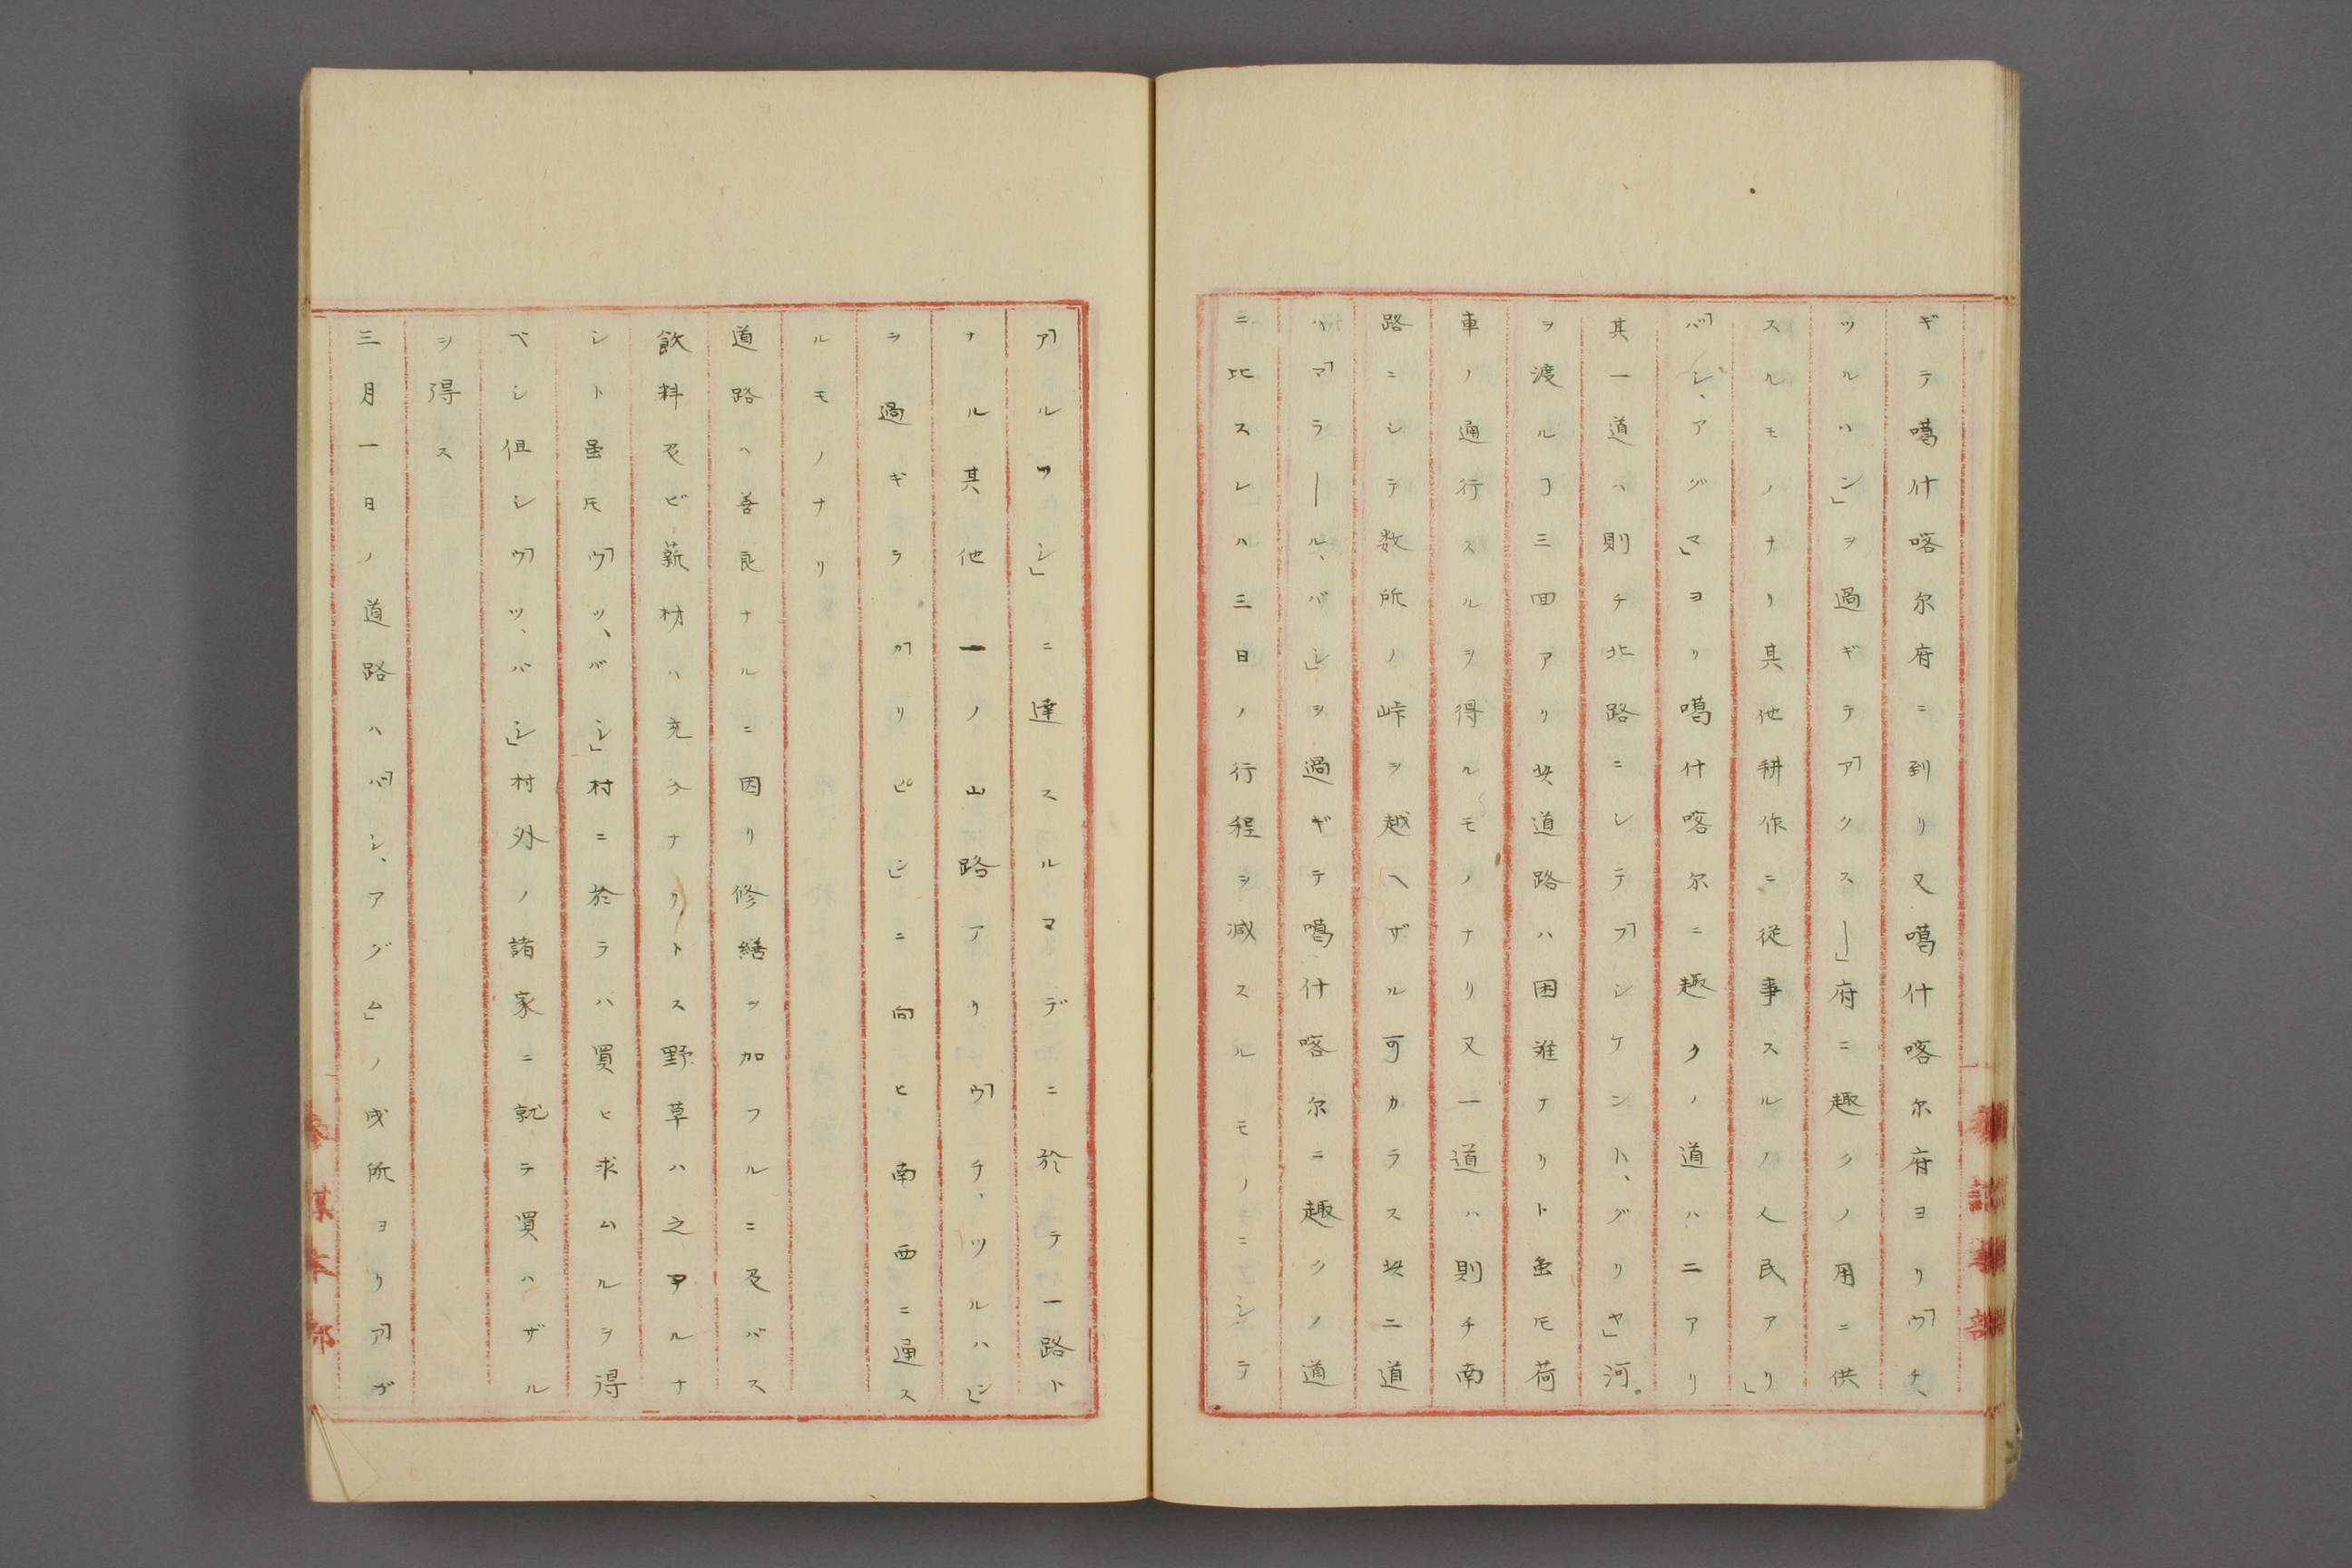 ギテ噶什喀尔府ニ到リ又噶什喀尔府ヨリ「ウチ、
ツルハン」ヲ過ギテ「アクスー」府ニ趣クノ用ニ供
スルモノナリ其他耕作ニ従事スルノ人民アリ」
「バシ、アグマ」ヨリ噶什喀尔ニ趣クノ道ハ二アリ
其一道ハ則チ北路ニシテ「フシケント、グリヤ」河
ヲ渡ルヿ三回アリ此道路ハ困難ナリト虽モ荷
車ノ通行スルヲ得ルモノナリ又一道ハ則チ南
路ニシテ数所ノ峠ヲ越ヘザル可カラス此二道
ハ「マラール、バシ」ヲ過ギテ噶什喀尔ニ趣クノ道
ニ比スレハ三日ノ行程ヲ減スルモノニシテ
「アルツシ」ニ達スルマデニ於テ一路ト
ナル其他一ノ山路アリ「ウチ、ツルハン」
ヲ過ギラ「カリピシ」ニ向ヒ南西ニ通ス
ルモノナリ
道路ハ善良ナルニ因リ修繕ヲ加フルニ及バス
飲料及ビ薪材ハ充分ナリトス野草ハ之アルナ
シト虽モ「ウツ、バシ」村ニ於ラハ買ヒ求ムルヲ得
ベシ但シ「ウツ、バシ」村外ノ諸家ニ就ラ買ハザル
ヲ得ス
三月一日ノ道路ハ「バシ、アグム」ノ戍所ヨリ「アガ
参謀本部
参謀本部